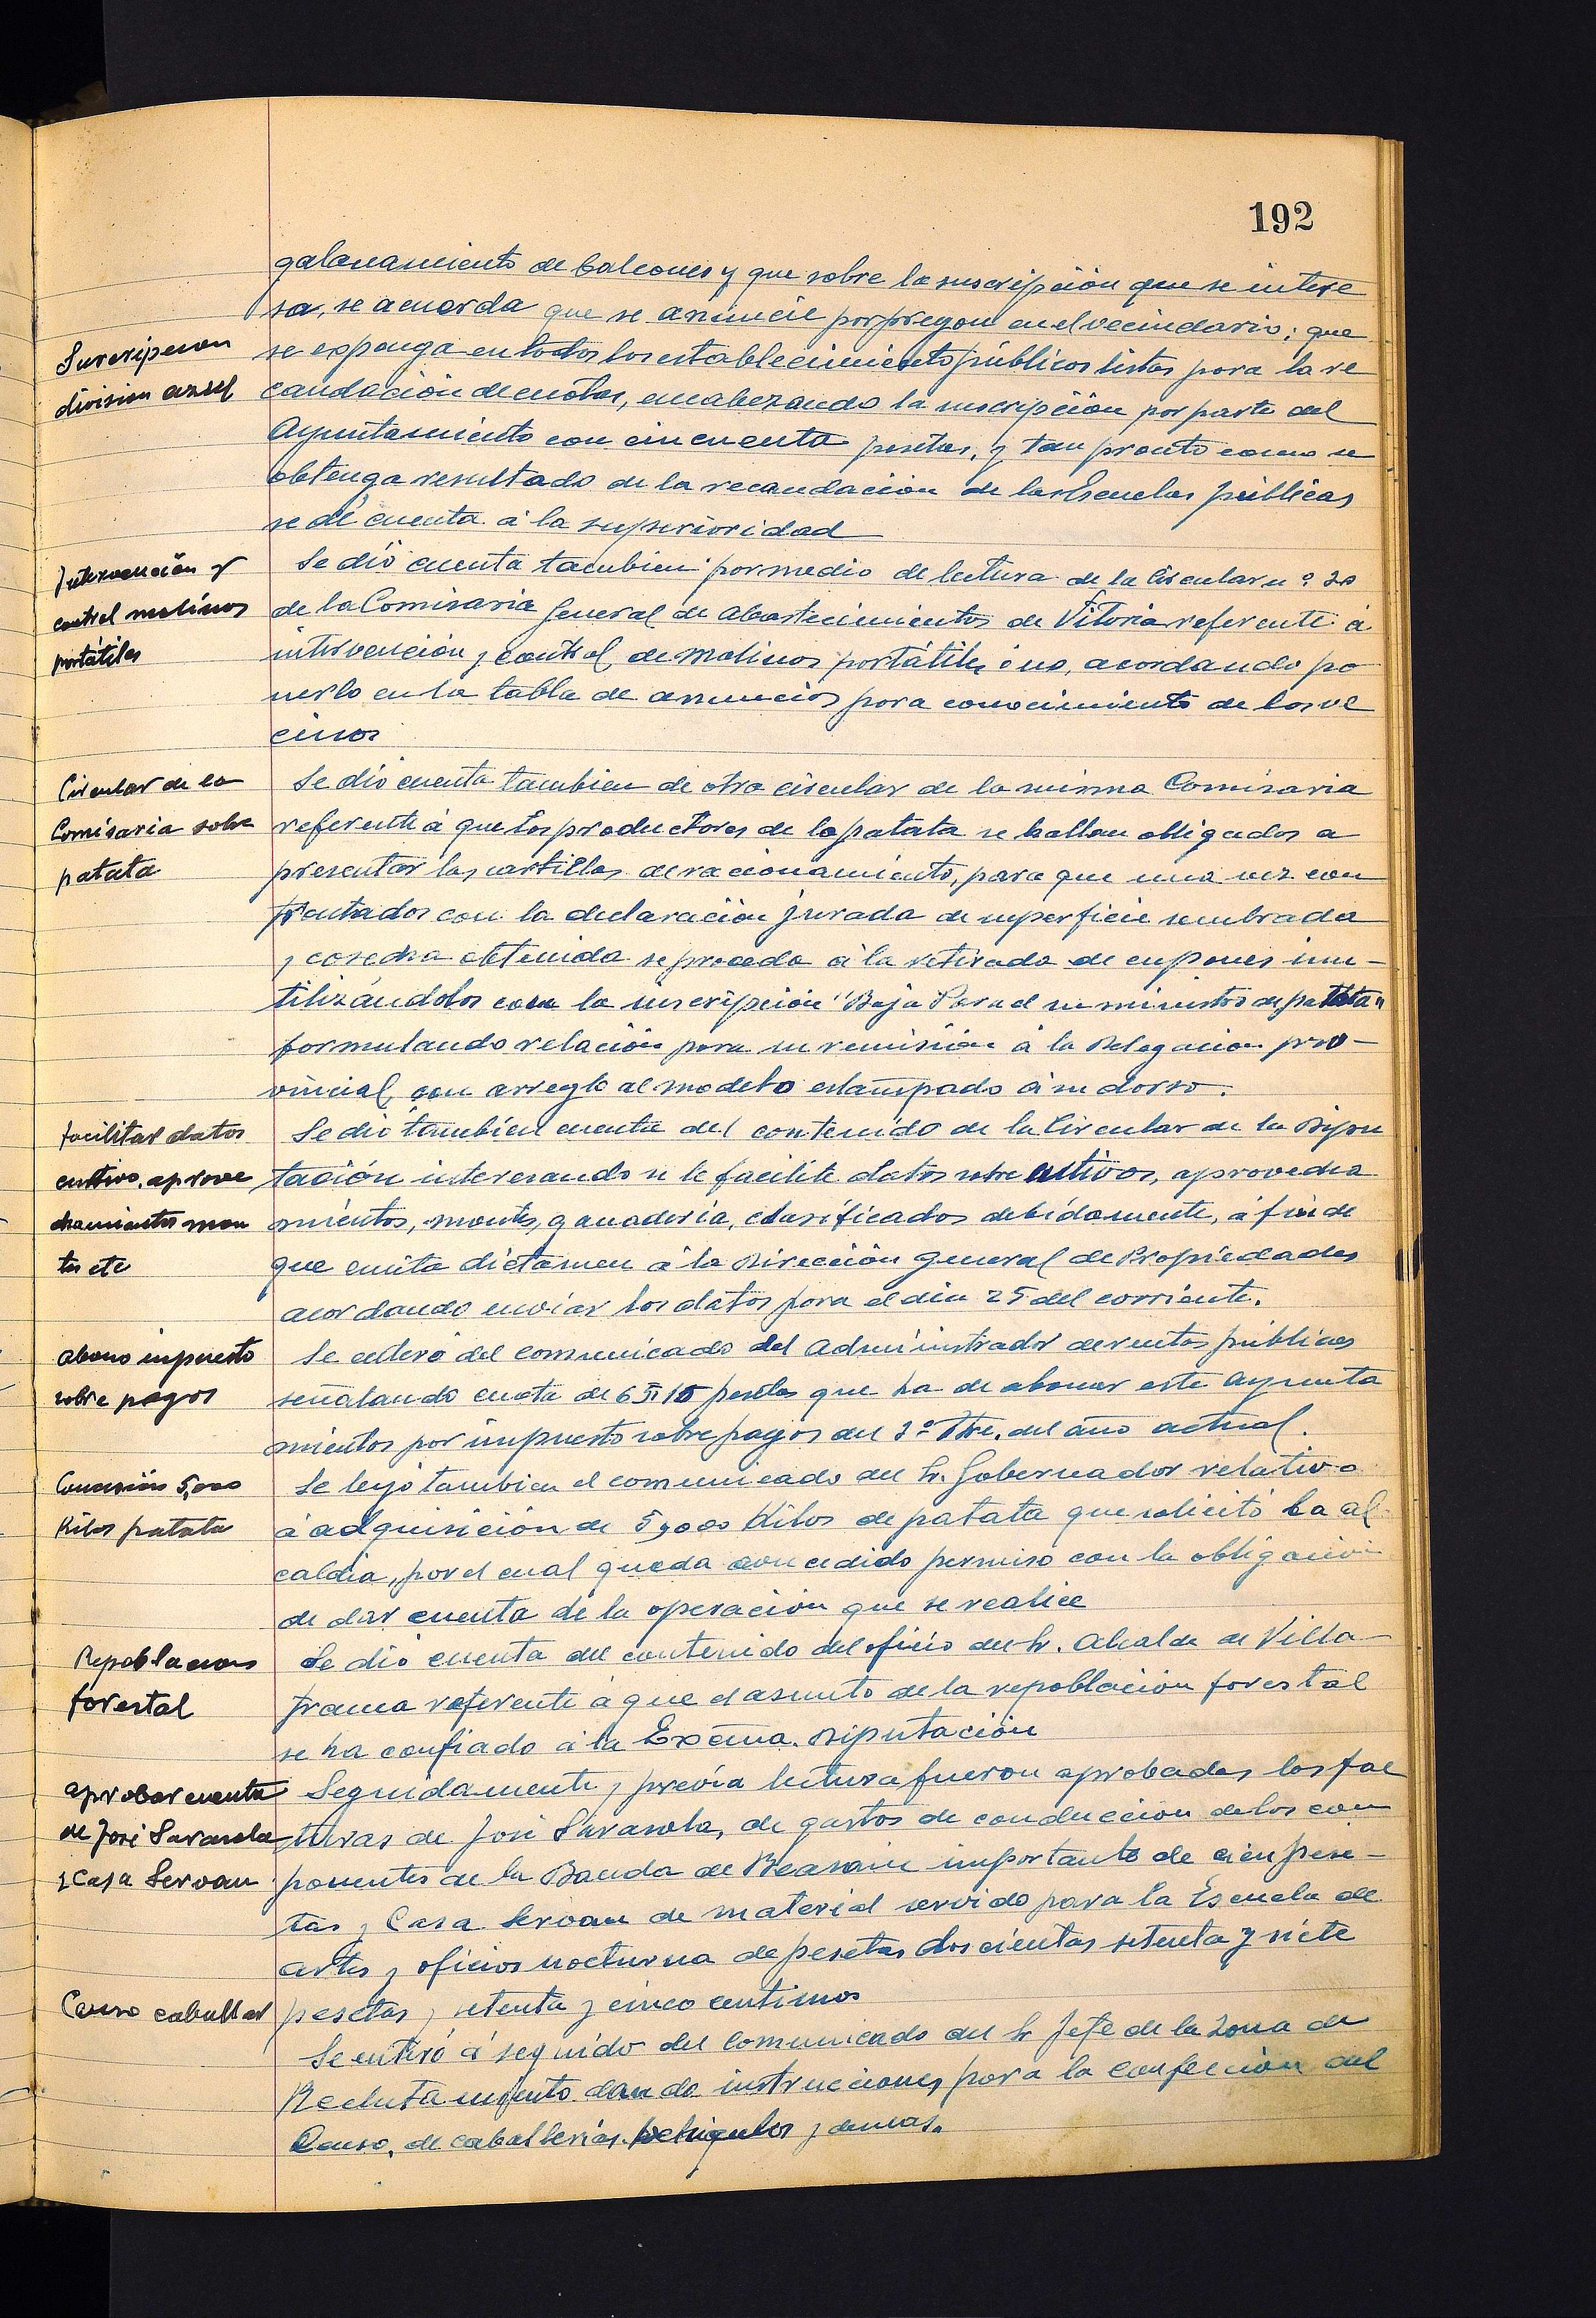 192
galanamiento de balcones y que sobre la suscripción que se intere
sa, se acuerda que se anuncie por pregon en el vecindario; que
Suscripcion
division azul
se exponga en todos los establecimientos públicos listas para la re
caudación de cuotas, encabezando la suscripción por parte del
Ayuntamiento con cincuenta pesetas, y tan pronto como se
obtenga resultado de la recaudación de las Escuelas públicas
se dé cuenta á la superioridad
Intervención y
control molinos
portátiles
Se dió cuenta tambien por medio de lectura de la Circular nº 20
de la Comisaria General de Abastecimientos de Vitoria referente á
intervención y control de molinos portátiles ó no, acordando po
nerlo en la tabla de anuncios para conocimiento de los ve
cinos
Circular de la
Comisaria sobre
patata
Se dió cuenta tambien de otra circular de la misma Comisaria
referente á que los productores de la patata se hallan obligados a
presentar las cartillas de racionamiento, para que una vez con
frontados con la declaración jurada de superficie sembrada
y cosecha obtenida se proceda á la retirada de cupones inu-
tilizándolos con la inscripción "Baja Para el suministro de patata"
formulando relación para su remisión á la Delegacion pro-
vincial, con arreglo al modelo estampado á su dorso.
facilitar datos
cultivo, aprove
chamientos mon
tes etc
Se dió tambien cuenta del contenido de la Circular de la Dipu
tación interesando se le facilite datos sobre cultivos, aprovecha
mientos, montes, ganaderia, clasificados debidamente, á fin de
que emita dictamen á la Dirección General de Propiedades
acordando enviar los datos para el dia 25 del corriente.
Abono impuesto
sobre pagos
Se enteró del comunicado del Administrador de rentas públicas
señalando cuota de pesetas que ha de abonar este Ayunta
mientos por impuesto sobre pagos del Tre. del año actual.
Concesión 5,000
Kilos patata
Se leyó tambien el comunicado del Sr. Gobernador relativo
á adquisición de 5,000 Kilos de patata que solicitó la al
caldia, por el cual queda concedido permiso con la obligación
de dar cuenta de la operación que se realice
Repoblacion
forestal
Se dió cuenta del contenido del oficio del Sr. Alcalde de Villa
franca referente á que el asunto de la repoblación forestal
se ha confiado á la Excma. Diputación
aprobar cuenta
de José Sarasola
y Casa Servan
Seguidamente y previa lectura fueron aprobadas las fac
turas de José Sarasola, de gastos de conduccion de los com
ponentes de la Banda de Beasain importante de cien pese-
tas y Casa Servan de material servido para la Escuela de
artes y oficios nocturna de pesetas doscientas setenta y siete
pesetas y setenta y cinco centimos
Censo caballar
Se enteró á seguido del comunicado del Sr Jefe de la Zona de
Reclutamiento dando instrucciones para la confeccion del
Censo, de caballerias, vehiculos y demas.